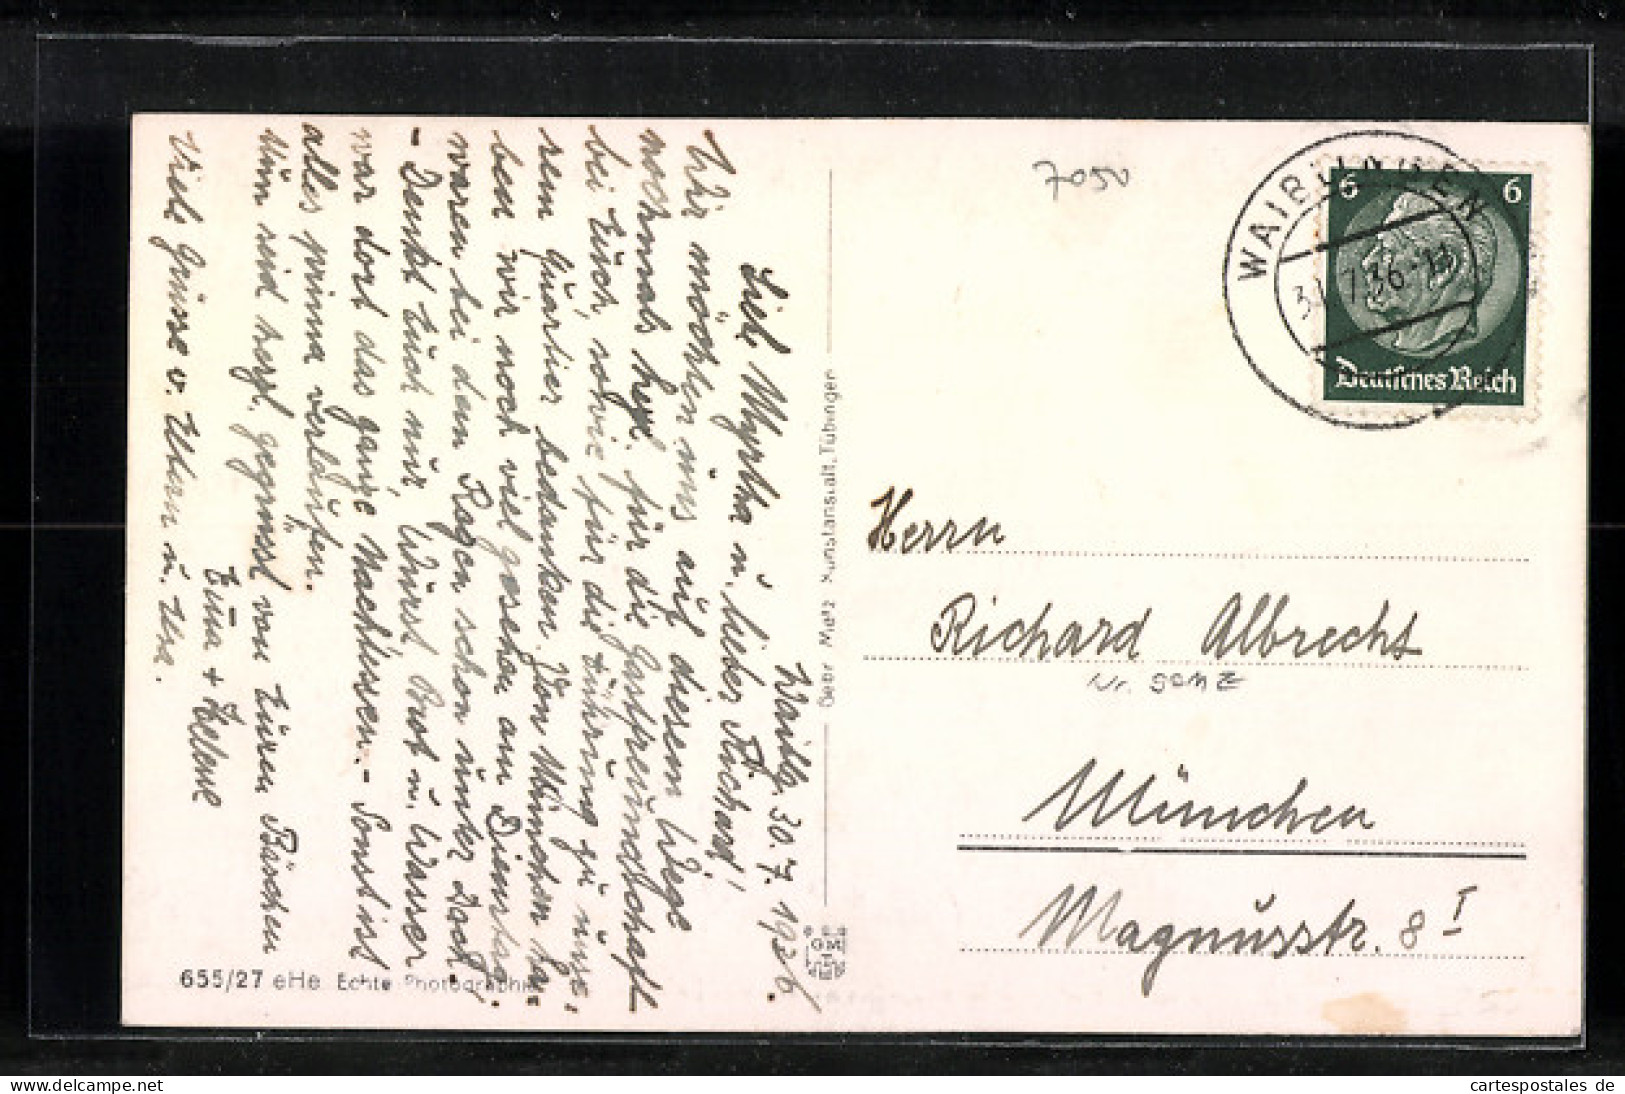 Waibl. 30.7.1936.
Lieb Myrtha u. lieber Richard!
Wir möchten uns auf diesem Wege
nochmals herzl. für die Gastfreundschaft
bei Euch, sowie für die Führung zu unse-
rem Quartier bedanken. Von München ha-
ben wir noch viel gesehen am Dienstag
waren bei dem Regen schon unter Dach.
- Denkt Euch nur, Wurst, Brot u. Wasser
war dort das ganze Nachtessen. - Sonst ist
alles prima verlaufen.
Nun seid herzl. gegrüsst von Euren Bäschen
Emma + Helene
Viele Grüsse v. Eltern u.
655/27 eHe Echte Photographie
Gebr. Metz Kunstanstalt, Tübingen
GM
7050
WAIBLINGEN
31.7.36
6 6
Deutsches Reich
Herrn
Richard Albrecht
München
Magnusstr. 8 I
cartespostales.de